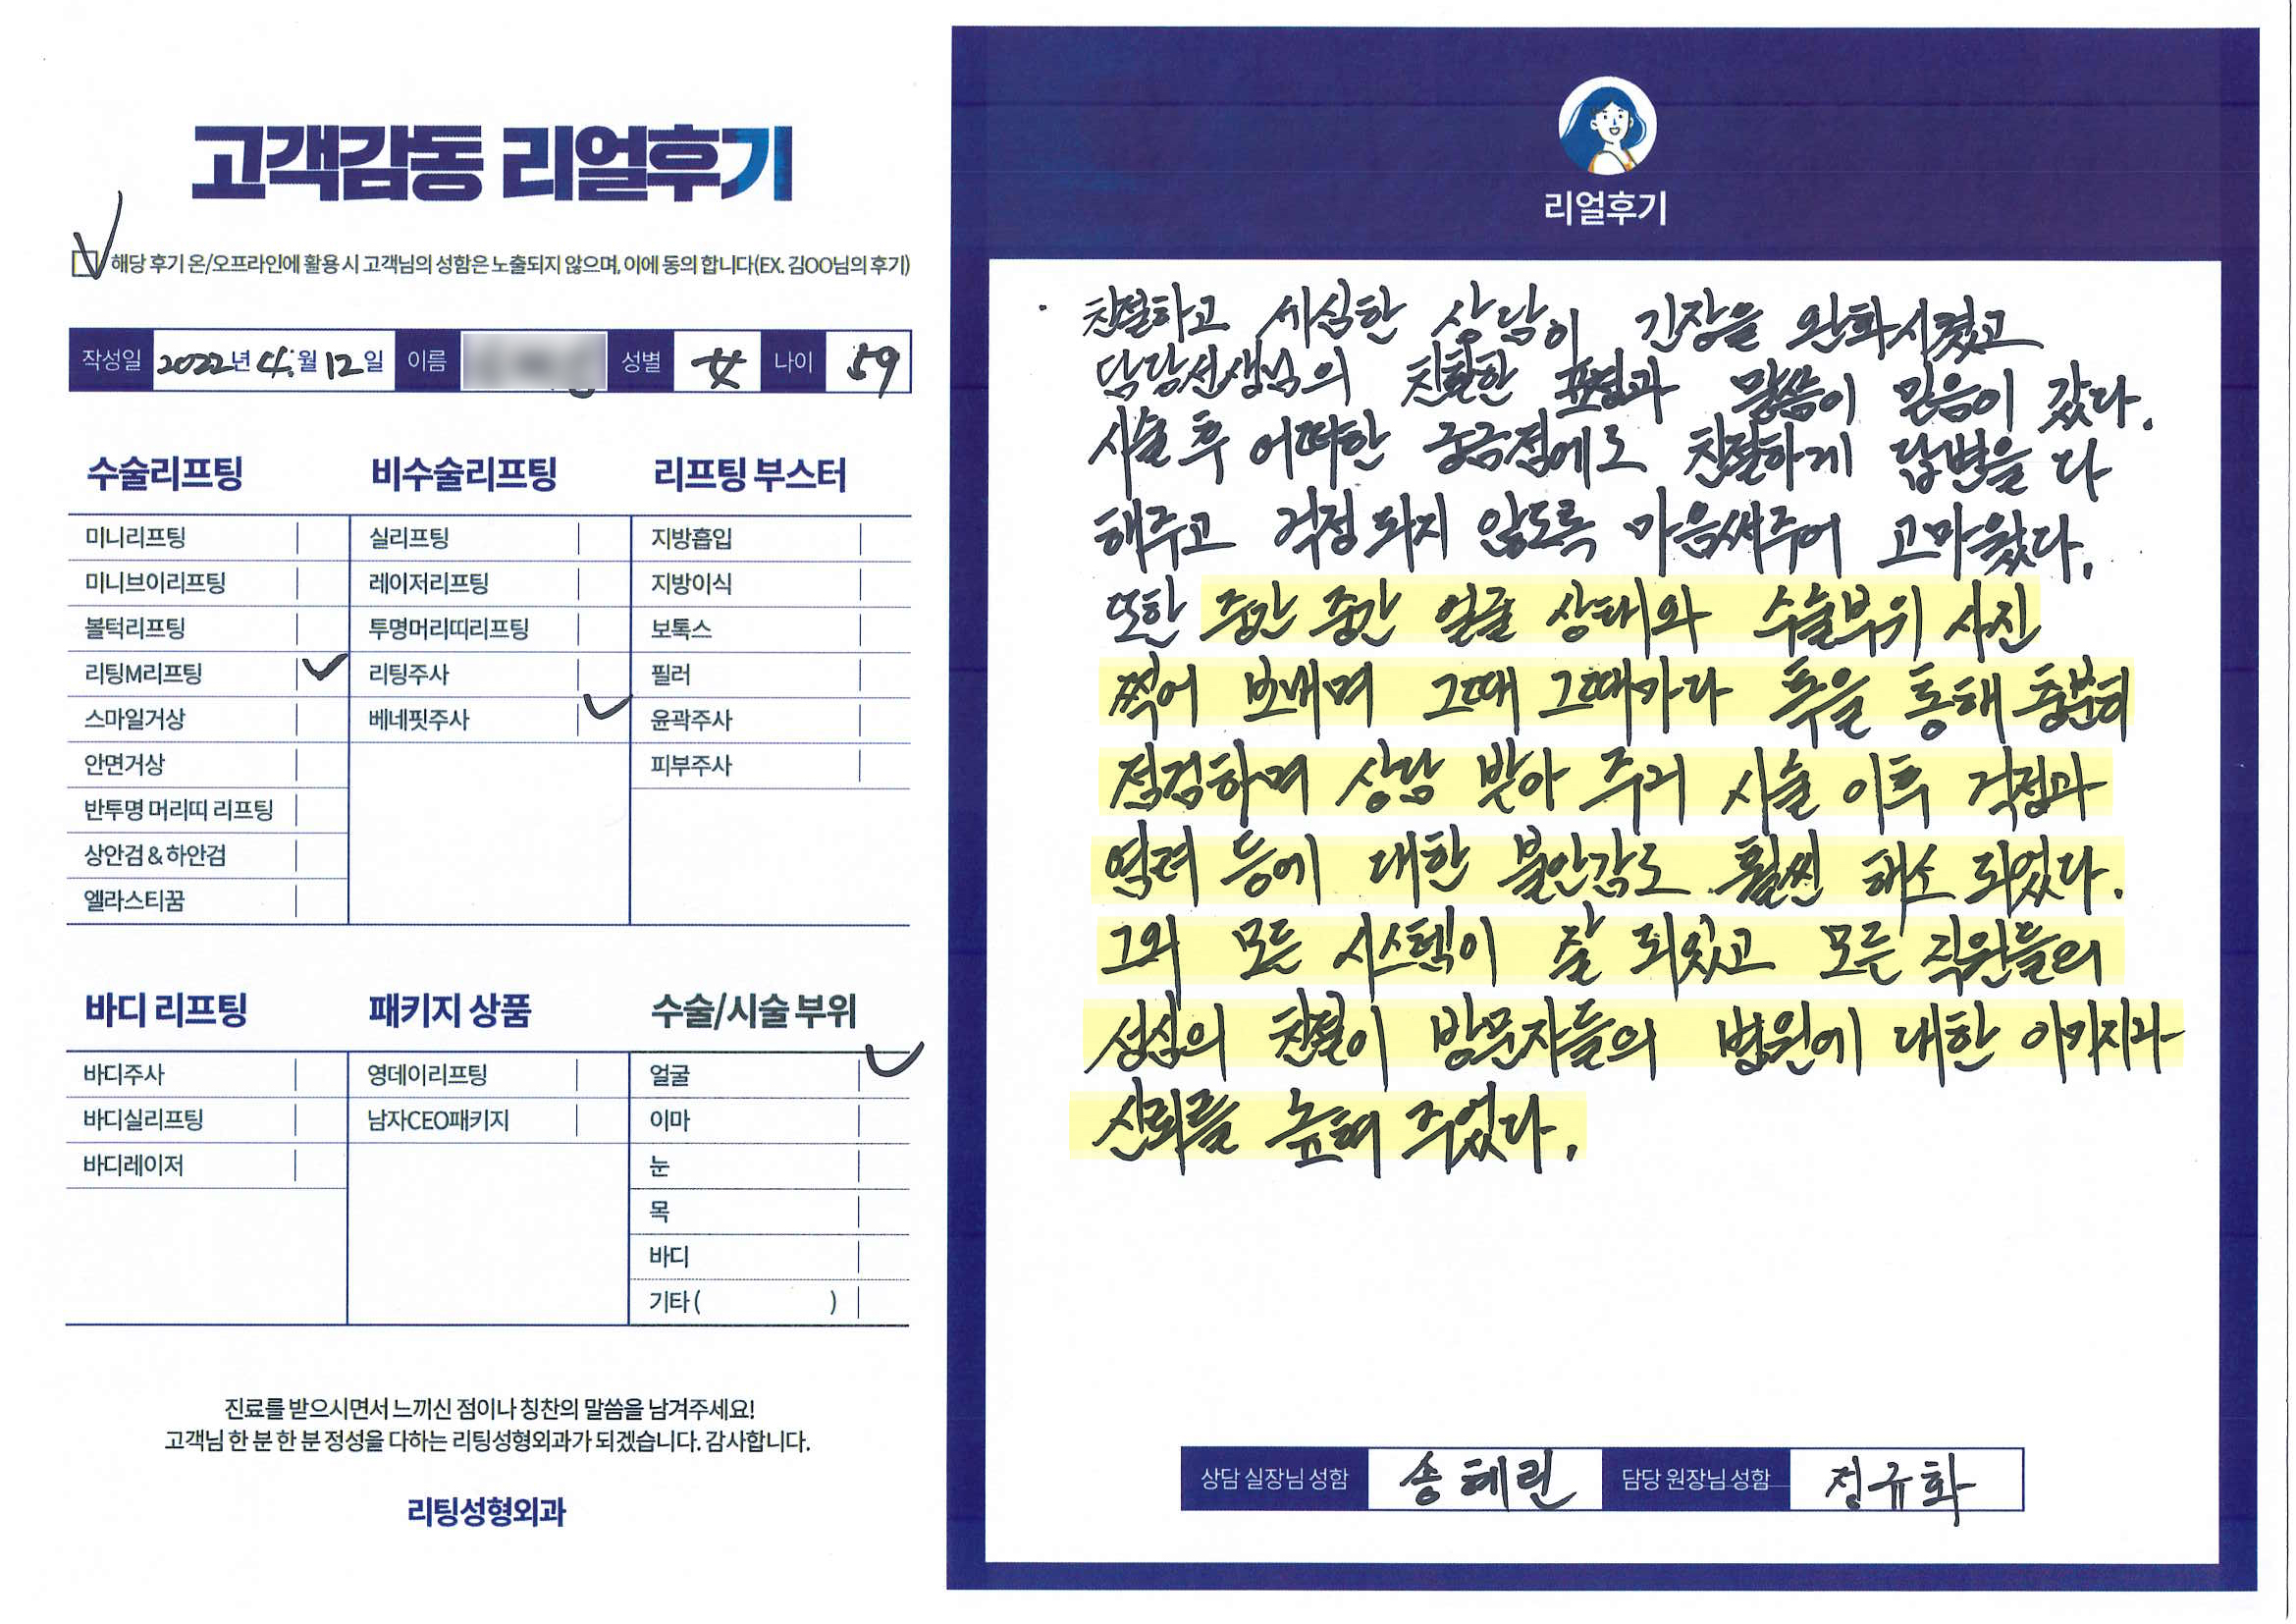 고객감동 리얼후기
해당 후기 온/오프라인에 활용 시 고객님의 성함은 노출되지 않으며, 이에 동의 합니다(EX. 김OO님의 후기)
작성일 2022년 4.월 12일 이름 성별 女 나이 59
수술리프팅
미니리프팅
미니브이리프팅
볼턱리프팅
리팅M리프팅
스마일거상
안면거상
반투명 머리띠 리프팅
상안검 & 하안검
엘라스티꿈
비수술리프팅
실리프팅
레이저리프팅
투명머리띠리프팅
리팅주사
베네핏주사
리프팅 부스터
지방흡입
지방이식
보톡스
필러
윤곽주사
피부주사
바디 리프팅
바디주사
바디실리프팅
바디레이저
패키지 상품
영데이리프팅
남자CEO패키지
수술/시술 부위
얼굴
이마
눈
목
바디
기타 ( )
진료를 받으시면서 느끼신 점이나 칭찬의 말씀을 남겨주세요!
고객님 한 분 한 분 정성을 다하는 리팅성형외과가 되겠습니다. 감사합니다.
리팅성형외과
리얼후기
친절하고 세심한 상담이 긴장을 완화시켰고
담당선생님의 친절한 표정과 말씀이 믿음이 갔다.
시술 후 어떠한 궁금점에도 친절하게 답변을 다
해주고 걱정 되지 않도록 마음써주어 고마웠다.
또한 중간 중간 얼굴 상태와 수술부위 사진
찍어 보내며 그때 그때마다 톡을 통해 충분히
점검하며 상담 받아 주어 시술 이후 걱정과
염려 등에 대한 불안감도 훨씬 해소 되었다.
그외 모든 시스템이 잘 되있고 모든 직원들의
성심의 친절이 방문자들의 병원에 대한 이미지과
신뢰를 높혀 주었다.
상담 실장님 성함 송혜린 담당 원장님 성함 정규화